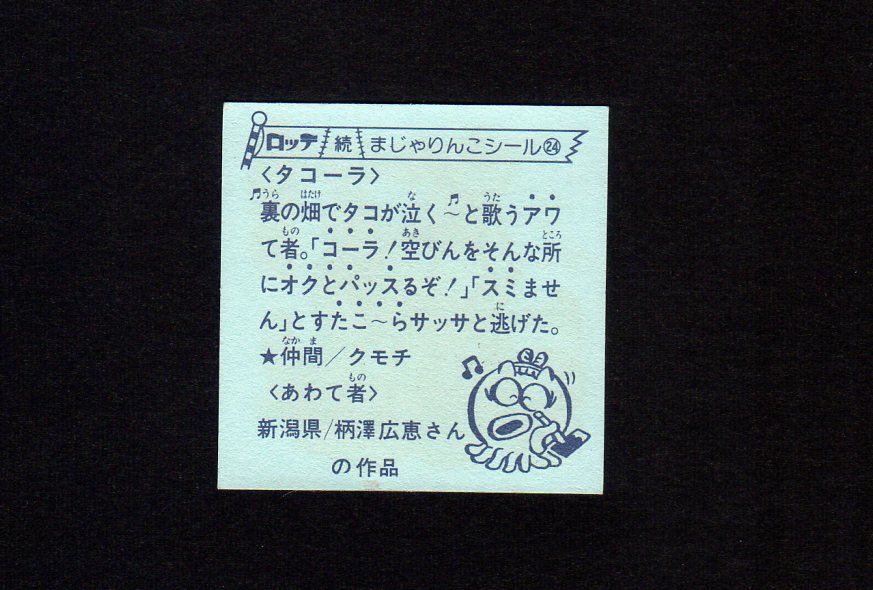 ロッテ 続 まじゃりんこシール㉔
〈タコーラ〉
♬裏の畑でタコが泣く〜♬と歌うアワ
て者。「コーラ!空びんをそんな所
にオクとパッスるぞ!」「スミませ
ん」とすたこ〜らサッサと逃げた。
★仲間/クモチ
〈あわて者〉
新潟県/柄澤広恵さん
の作品